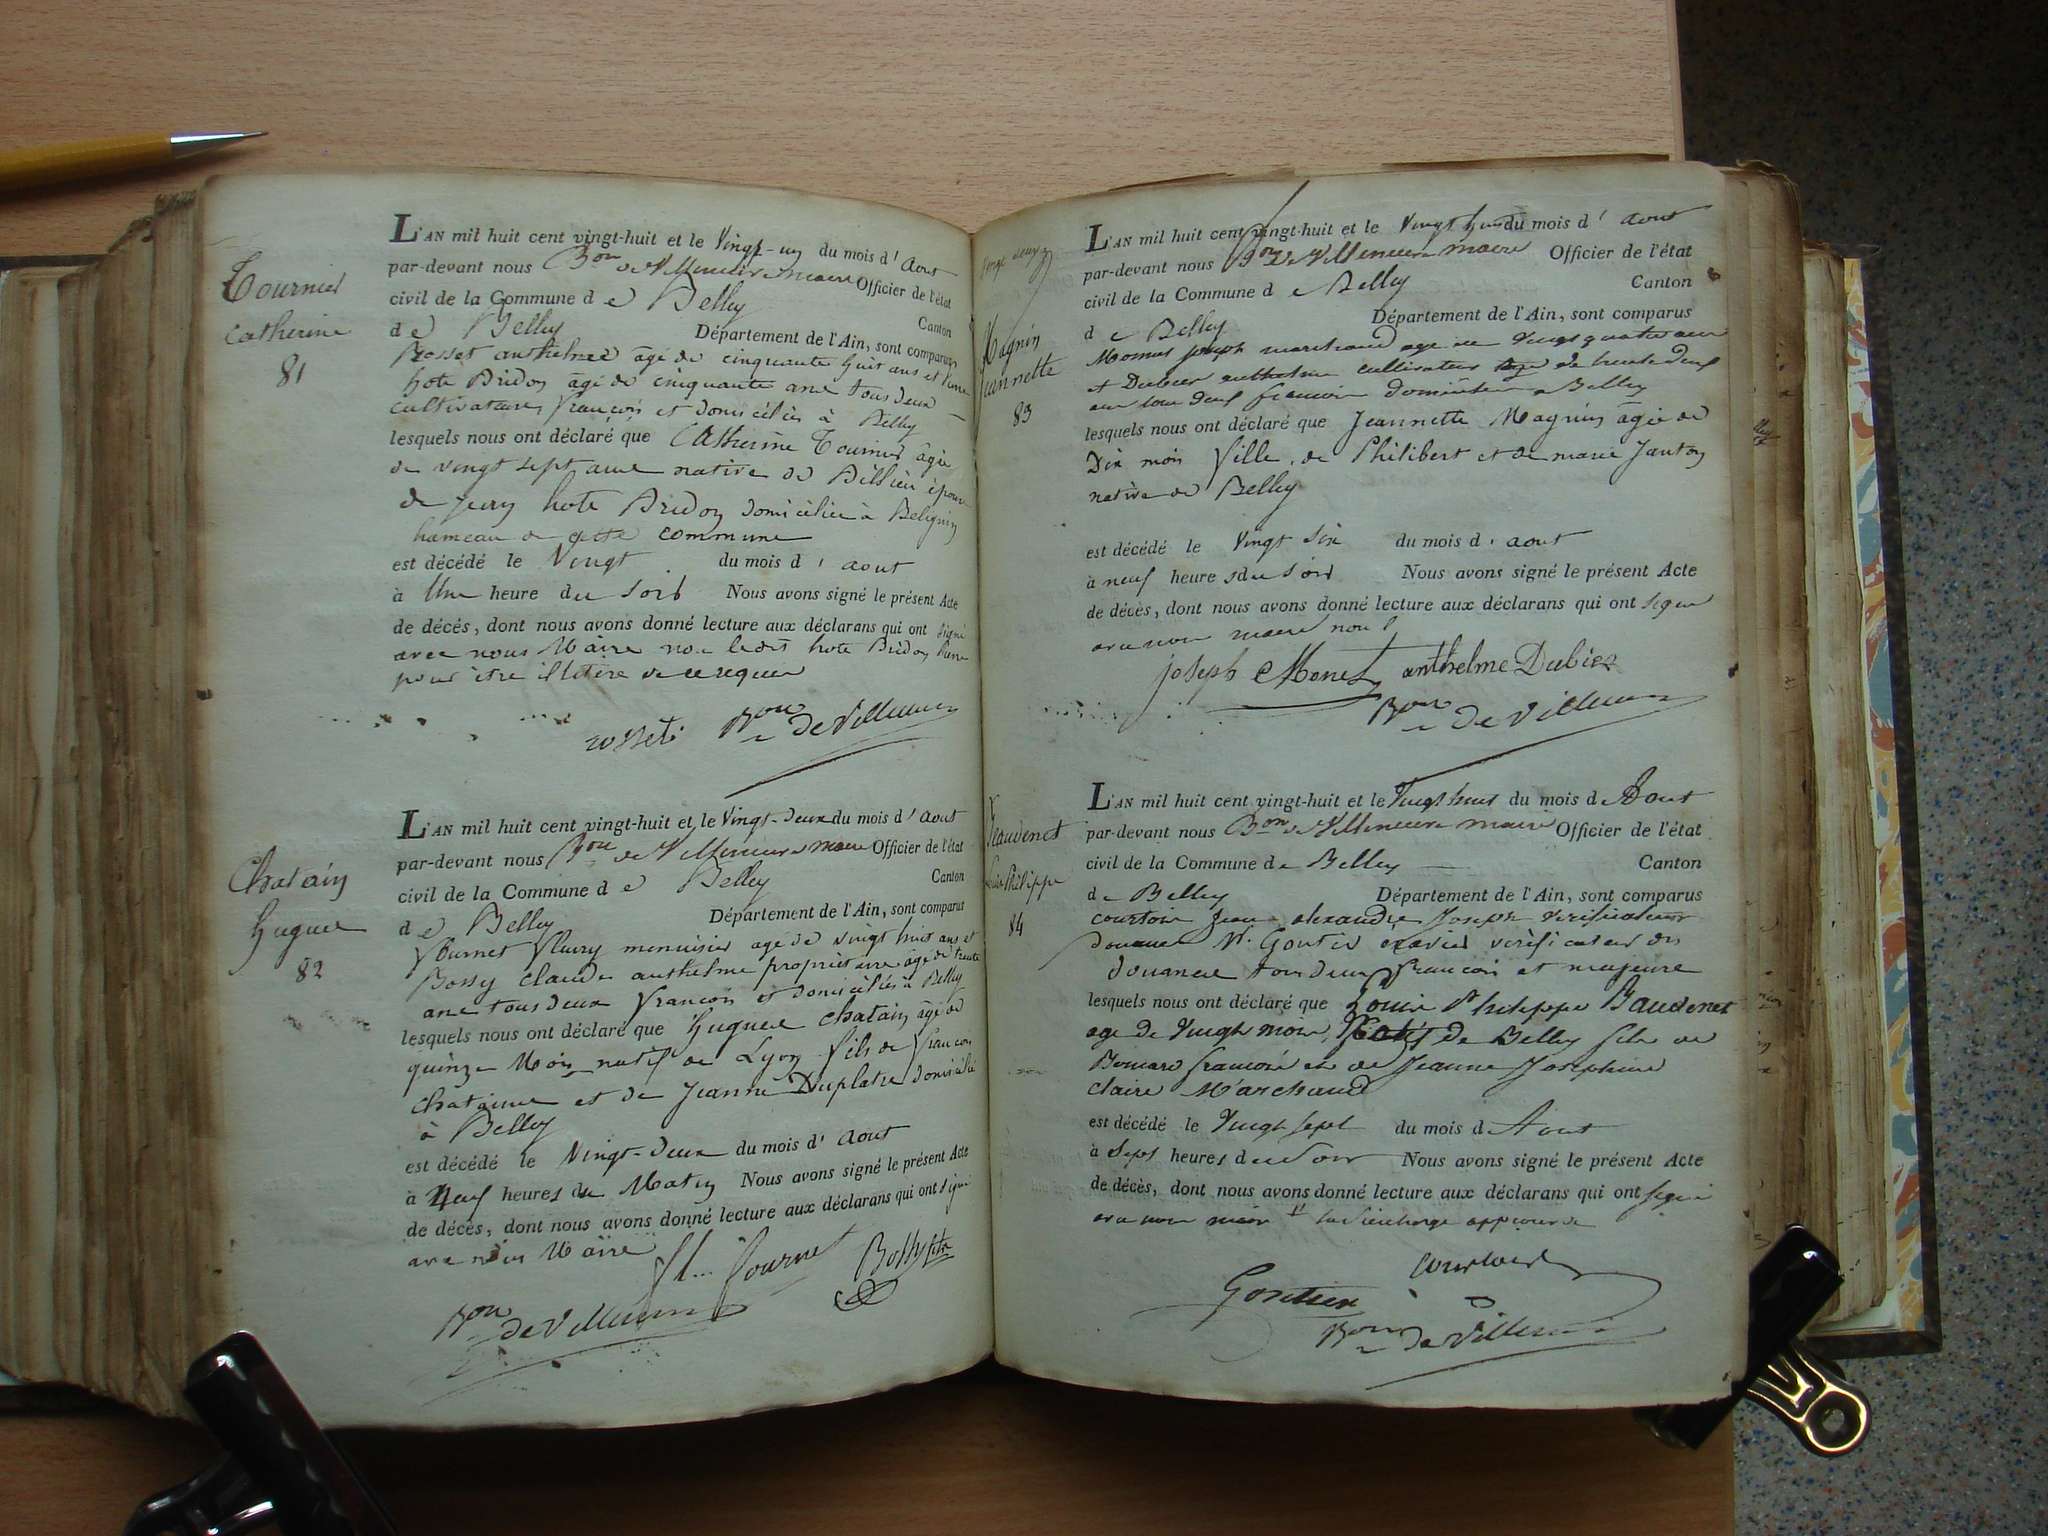 Tournier
Catherine
81
L'AN mil huit cent vingt-huit et le Vingt-un du mois d' Aout
par-devant nous Bon de Villeneuve maire Officier de l'état
civil de la Commune d e Belley Canton
d e Belley Département de l'Ain, sont comparus
Rosset anthelme âgé de cinquante huit ans et
hote Bridon âgé de cinquante ans tous deux
cultivateurs francois et domiciliés à Belley
lesquels nous ont déclaré que Catherine Tournier âgée
de vingt sept ans native de Billieu épouse
de Jean hote Bridon domiciliée à Belignin
hameau de cette commune
est décédé le Vingt du mois d' aout
à Une heure du Soir Nous avons signé le présent Acte
de décés, dont nous avons donné lecture aux déclarans qui ont signé
avec nous Maire non ledit hote Bridon Pierre
pour être illétéré de ce requis
rosset Bon de Villeneuve
Chatain
Hugues
82
L'AN mil huit cent vingt-huit et le Vingt-deux du mois d' Aout
par-devant nous Bon de Villeneuve maire Officier de l'état
civil de la Commune d e Belley Canton
d e Belley Département de l'Ain, sont comparus
Fournet fleury menuisier agé de vingt huit ans et
Bossy Claude anthelme propriétaire âgé de trente
ans tous deux francois et domiciliés à Belley
lesquels nous ont déclaré que Hugues Chatain âgé de
quinze Mois natif de Lyon fils de francois
Chataine et de Jeanne Duplatre domicilié
à Belley
est décédé le Vingt-deux du mois d' Aout
à Neuf heures du Matin Nous avons signé le présent Acte
de décés, dont nous avons donné lecture aux déclarans qui ont signé
avec nous Maire
fl... fournet Bossy
Bon de Villeneuve
Magnin
Jeannette
83
L'AN mil huit cent vingt-huit et le Vingt huit du mois d' Aout
par-devant nous Bon de Villeneuve maire Officier de l'état
civil de la Commune d e Belley Canton
d e Belley Département de l'Ain, sont comparus
Monnet Joseph marchand age de Vingt quatre ans
et Dubier anthelme cultivateur age de trente deux
ans tous deux francois domiciliés a Belley
lesquels nous ont déclaré que Jeannette Magnin âgée de
Dix mois fille de Philibert et de marie Janton
native de Belley
est décédé le Vingt Six du mois d' aout
à neuf heures du soir Nous avons signé le présent Acte
de décés, dont nous avons donné lecture aux déclarans qui ont signé
avec nous maire
joseph Monet anthelme Dubier
Bon de Villeneuve
Beaudenet
Louis Philippe
84
L'AN mil huit cent vingt-huit et le Vingt huit du mois d Aout
par-devant nous Bon de Villeneuve maire Officier de l'état
civil de la Commune d e Belley Canton
d e Belley Département de l'Ain, sont comparus
courtois Jean alexandre Joseph verificateur
douanes Mr. Gontier xavier vérificateur des
douanes tous deux francois et majeurs
lesquels nous ont déclaré que Louis Philippe Baudenet
age de Vingt mois, natif de Belley fils de
francois et de Jeanne Josephine
Claire Marchand
est décédé le Vingt sept du mois d Aout
à Sept heures du Soir Nous avons signé le présent Acte
de décés, dont nous avons donné lecture aux déclarans qui ont signé
avec nous maire la surcharge approuvée
Courtois
Gontier
Bon de Villeneuve